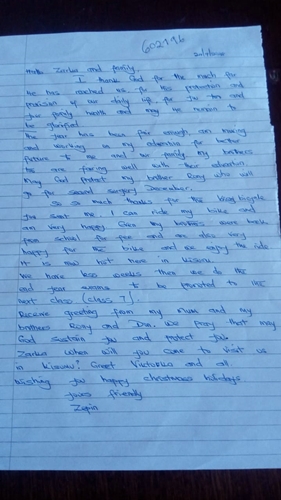 602196
Hello Zarka and family.
I thank God for the much for
he has reached us for his protection and
provision of our daily life, for you and
your family health and may he remain to
be glorified.
The year has been fair enough, am moving
and working on my education for better
future to me and our family. My brothers
are fairing well with their education.
May God protect my brother Romy who will
go for second surgery December.
So so much thanks for the bicycle
you sent me. I can ride my bike and
am very happy. Even my brothers come back
from school for and am also very
happy for the bike and we enjoy the ride
It is now hot here in Kisumu.
We have less weeks then we do the
end year exams to be promoted to the
next class (class 7).
Receive greeting from my Mum and my
brothers Romy and Dan. We pray that may
God sustain you and protect you.
Zarka when will you come to visit us
in Kisumu? Greet Viktorka and all.
Wishing you happy christmas holidays
yours friendly